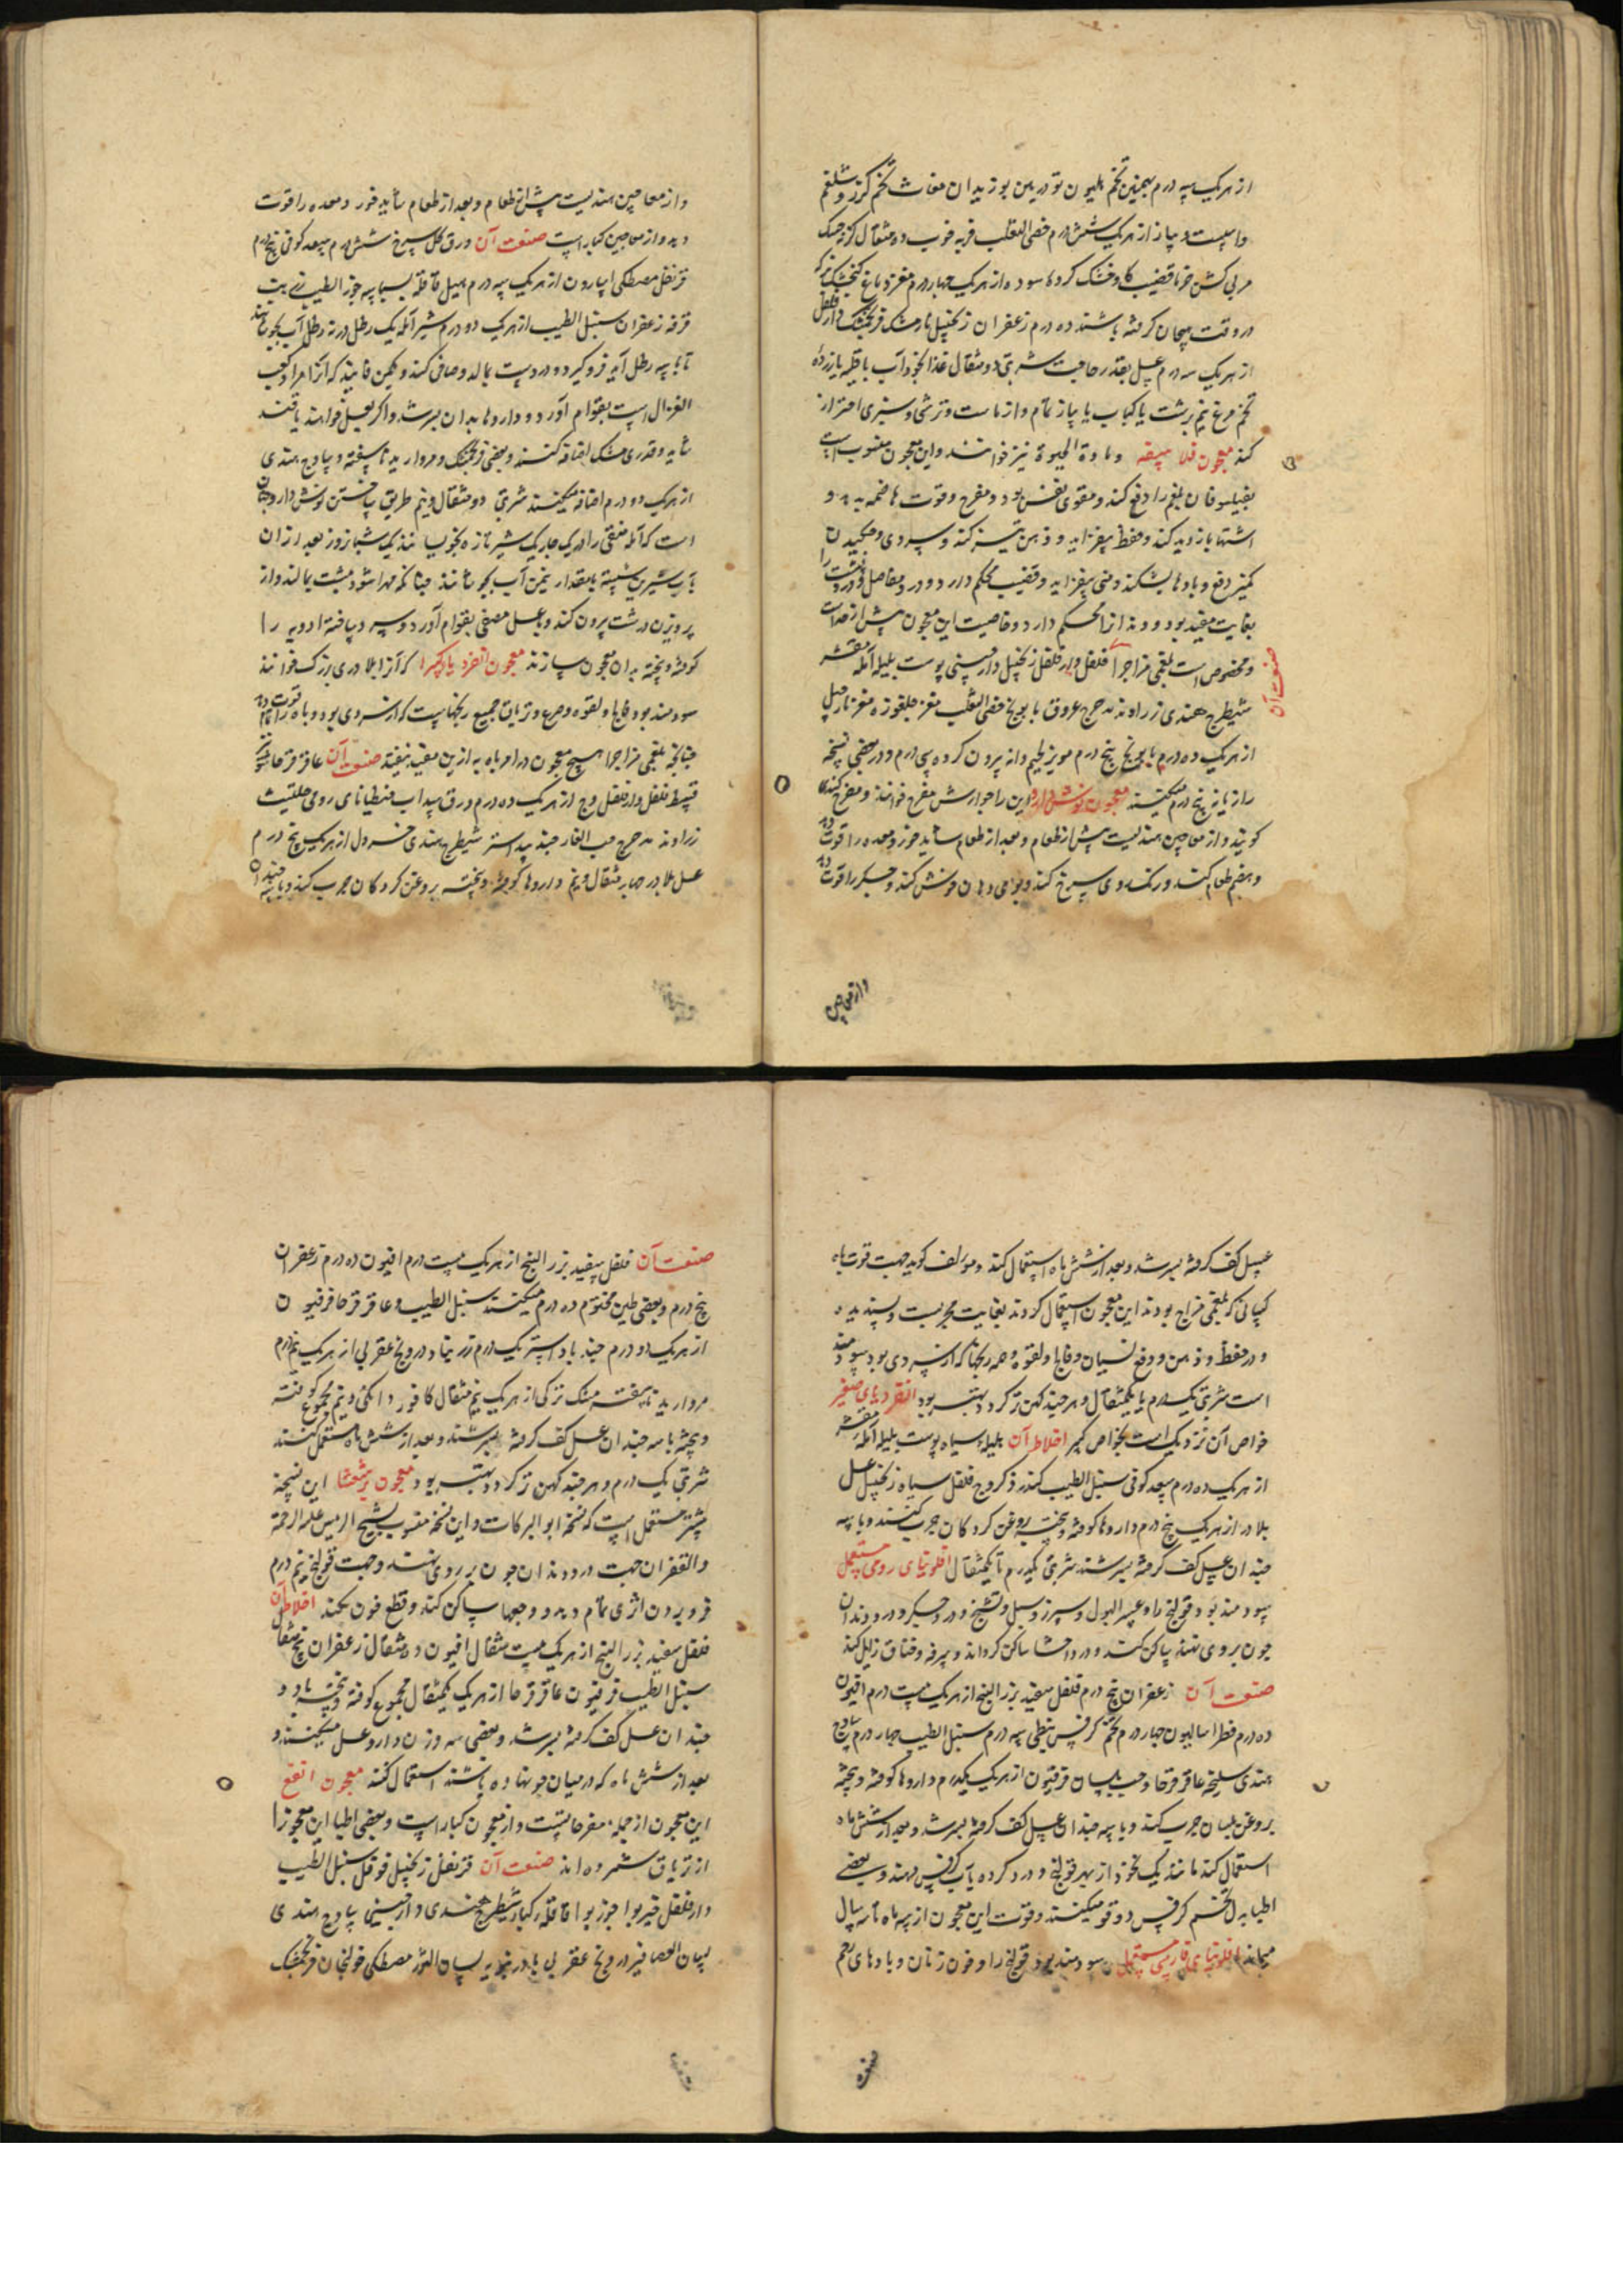 از هریک سه درم بهمنین تخم هلیون تودریین بوزیدان مغاث تخم گزر و شلغم
و اسپست و پیاز از هریک شش درم خصی الثعلب فربه خوب ده مثقال
مربی کشن خرما قضیب کاو خشک کرده سوده از هریک چهار درم مغز دماغ کنجشک نر که
در وقت هیجان کرفته باشند ده درم زعفران زنجبیل نارمشک فرنجمشک دارفلفل
از هریک سه درم عسل بقدر حاجت شربتی دو مثقال غذا نخودآب با قلیه یا زرده
تخم مرغ نیم برشت یا کباب با پیاز تمام و از ماست و ترشی و سبزی احتراز
کند معجون فلاسفه و مادة الحیوة نیز خوانند و این معجون منسوب است
بفیلسوفان بلغم را دفع کند و مقوی نفس بود و مفرح و قوت هاضمه بدهد و
اشتها بازدید کند و حفظ بیفزاید و ذهن تیز کند و سردی و چکیدن
کمیز دفع و بادها بشکند و منی بیفزاید و قضیب محکم دارد و درد مفاصل و درد پشت را
بغایت مفید بود و دندانرا محکم دارد و خاصیت این معجون بیش از حد است
و مخصوص است بلغمی مزاجرا فلفل دارفلفل زنجبیل دارچینی پوست بلیله آمله مقشر
صنعت آن
شیطرج هندی زراوند مدحرج عروق بابونج خصی الثعلب مغز چلغوزه مغز نارجیل
از هریک ده درم بابونج پنج درم مویز لحیم دانه بیرون کرده سی درم و در بعضی نسخه
رازیانه پنج درم میکنند معجون نوش دارو این را جوارش مفرح خوانند و مفرح کندی
کویند و از معاجین هندیست پیش از طعام و بعد از طعام شاید خورد و معده را قوت دهد
و هضم طعام کند و رنک روی سرخ کند و بوی دهان خوش کند و جگر را قوت دهد
و از معاجین
و از معاجین هندیست پیش از طعام و بعد از طعام شاید خورد و معده را قوت
دهد و از معاجین کبار است صنعت آن ورق کل سرخ شش درم سعد کوفی پنج درم
قرنفل مصطکی اسارون از هریک سه درم هیل قاقله بسباسه جوز الطیب زرنب
قرفه زعفران سنبل الطیب از هریک دو درم شیر آمله یک رطل در نه رطل آب بجوشانند
تا با سه رطل آید فروکیرد و در دست بمالد و صافی کند و فانید که آنرا کعب
الغزال است بقوام آورد و داروها بدان بسرشد و اگر بعسل خواهند یا قند
شاید و قدری مشک اضافه کنند و بعضی فرنجمشک و مروارید ناسفته و ساذج هندی
از هریک دو درم اضافه میکنند شربتی دو مثقال و نیم طریق ساختن نوش دارو چنان
است که آمله منقی را در یک شیر تازه بخیسانند یک شبانروز بعد از آن
بآب شیرین شسته بمقدار بجوشانند چنانکه مهرا شود بدست بمالند و از
پرویزن درشت بیرون کند و با عسل مصفی بقوام آورد و سه و پافته ادویه را
کوفته و بیخته بدان معجون سازند معجون انقردیا کبیر که آنرا بلادری بزرک خوانند
سودمند بود فالج و لقوه و صرع و تریاق جمیع رنجهاست که از سردی بود و باه را قوت تمام دهد
چنانکه بلغمی مزاجرا هیچ معجون در امر باه به ازین مفید نیفتد صنعت آن عاقرقرحا شونیز
قسط فلفل دارفلفل وج از هریک ده درم ورق سداب جنطیانای رومی حلتیت
زراوند مدحرج حب الغار جندبیدستر شیطرج هندی خردل از هریک پنج درم
عسل بلادر چهار مثقال و نیم داروها کوفته و بیخته بروغن کردکان چرب کند و با سه چندان
عسل کف کرفته بسرشد و بعد از شش ماه استعمال کند و مؤلف کوید جهت قوت باه
کسانی که بلغمی مزاج بودند این معجون استعمال کردند بغایت مجربست و پسندیده
و در حفظ و ذهن و دفع نسیان و فالج و لقوه و همه رنجها که از سردی بود سودمند
است شربتی یک درم یا یکمثقال و هر چند کهن تر کردد بهتر بود انقردیای صغیر
خواص آن نزدیک است بخواص کبیر اخلاط آن هلیله سیاه پوست بلیله آمله مقشر
از هریک ده درم سعد کوفی سنبل الطیب کندر ذکر وج فلفل سیاه زنجبیل عسل
بلادر از هریک پنج درم داروها کوفته و بیخته بروغن کردکان چرب کنند و با سه
چندان عسل کف کرفته بسرشند شربتی یکدرم تا یکمثقال افلونیای رومی مستعمل
سودمند بود قولنج را و عسر البول و سپرز و سل و تشنج و درد جگر و درد دندان
چون بر وی نهند ساکن کند و درد احشا ساکن کرداند و سرفه و خناق زایل کند
صنعت آن زعفران پنج درم فلفل سفید بزر البنج از هریک بیست درم افیون
ده درم فطراسالیون چهار درم تخم کرفس نبطی سه درم سنبل الطیب چهار درم ساذج
هندی سلیخه عاقرقرحا و حب بلسان فرفیون از هریک یکدرم داروها کوفته و بیخته
بروغن بلسان چرب کند و با سه چندان عسل کف کرفته بسرشد و بعد از شش ماه
استعمال کند مانند یک نخود از بهر قولنج و درد کرده بآب کرفس دهند و بعضی
اطبا بدل تخم کرفس دوقو میکنند و قوت این معجون از سه ماه تا سه سال
میماند افلونیای فارسی مستعمل سودمند بود قولنج را و خون زنان و بادهای رحم
صنعت آن فلفل سفید بزر البنج از هریک بیست درم افیون ده درم زعفران
پنج درم و بعضی طین مختوم ده درم میکنند سنبل الطیب و عاقرقرحا فرفیون
از هریک دو درم جند بادستر یک درم زرنباد درونج عقربی از هریک نیم درم
مروارید ناسفته مشک ترکی از هریک نیم مثقال کافور دانکی و نیم مجموع کوفته
و بیخته با سه چندان عسل کف کرفته بسرشند و بعد از شش ماه مستعمل کنند
شربتی یک درم و هر چند کهن تر کردد بهتر بود معجون برشعثا این نسخه
بیشتر مستعمل است که نسخه ابو البرکات و این نسخه منسوب بشیخ الرئیس علیه الرحمة
والغفران جهت درد دندان چون بر روی نهند و جهت قولنج نیم درم
فرو بردن اثری تمام دهد و وجعها ساکن کند و قطع خون بکند اخلاط آن
فلفل سفید بزر البنج از هریک بیست مثقال افیون ده مثقال زعفران پنج مثقال
سنبل الطیب فرفیون عاقرقرحا از هریک یکمثقال مجموع کوفته و بیخته با دو
چندان عسل کف کرفته بسرشد و بعضی سه وزن دارو عسل میکنند و
بعد از شش ماه که در میان جو نهاده باشند استعمال کند معجون انفع
این معجون از جمله مفرحاتست و از معجون کبار است و بعضی اطبا این معجونرا
از تریاق شمرده اند صنعت آن قرنفل زنجبیل فوفل سنبل الطیب
دارفلفل خیربوا جوزبوا قاقله کبار شیطرج هندی دارچینی ساذج هندی
لسان العصافیر درونج عقربی بادرنبویه لسان الثور مصطکی خولنجان فرنجمشک